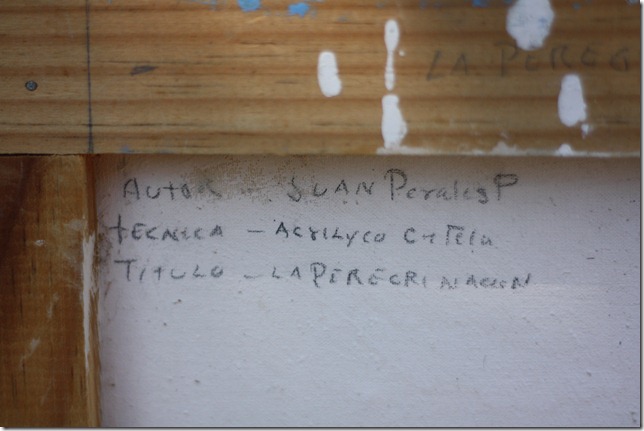 LA PEREG
Autor - JUAN Perales P
tecnica - Acrilyco C+Tela
Titulo - LA PEREGRINACION